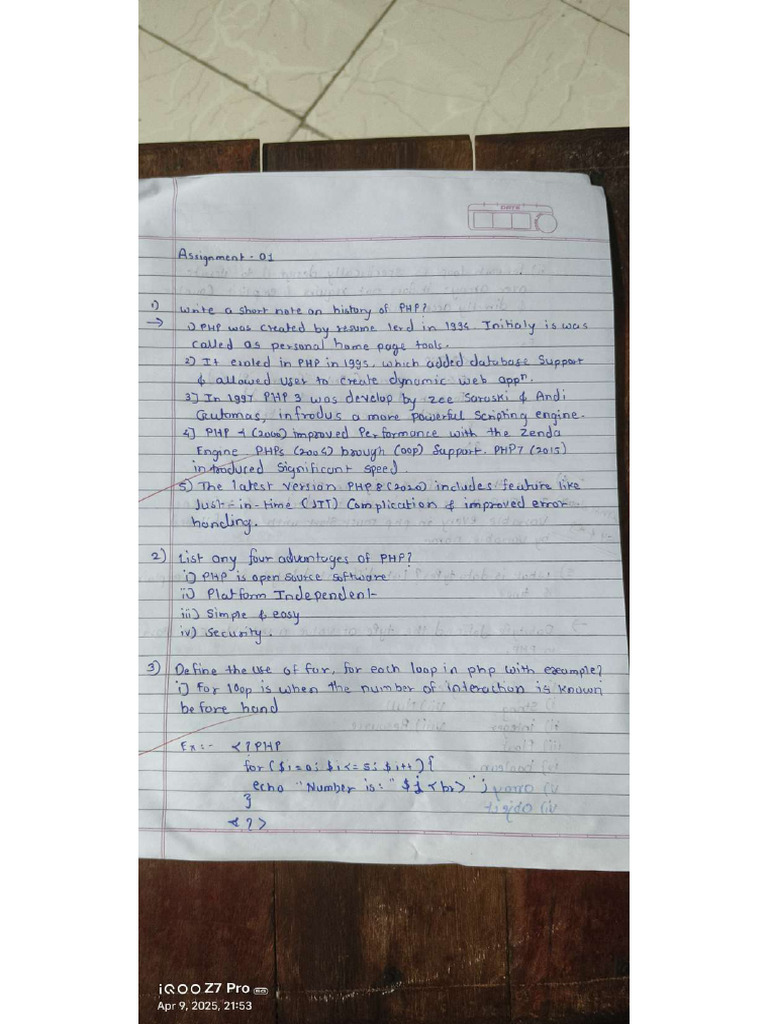 DATE
Assignment - 01
1) Write a short note on history of PHP?
→ 1) PHP was created by resume lerd in 1994. Initialy is was
called as personal home page tools.
2) It evoled in PHP in 1995, which added database Support
& allowed user to create dynamic web appⁿ.
3] In 1997 PHP 3 was develop by zee Saraski & Andi
Ceutomas, infrodus a more powerful Scripting engine.
4] PHP 4 (2000) improved Performance with the Zenda
Engine. PHP5 (2004) brough (oop) Support. PHP7 (2015)
introduced Significant speed.
5) The latest version PHP 8 (2020) includes feature like
Just-in-time (JIT) Complication & improved error
handling.
2) List any four advantages of PHP?
i) PHP is open source software
ii) Platform Independent
iii) Simple & easy
iv) Security.
3) Define the use of for, for each loop in php with example?
i) For loop is when the number of interaction is known
before hand
Ex:- <?PHP
for ($i=0; $i<=5; $i++) {
echo "Number is:" $i <br>" ;
}
<?>
iQOO Z7 Pro 5G
Apr 9, 2025, 21:53